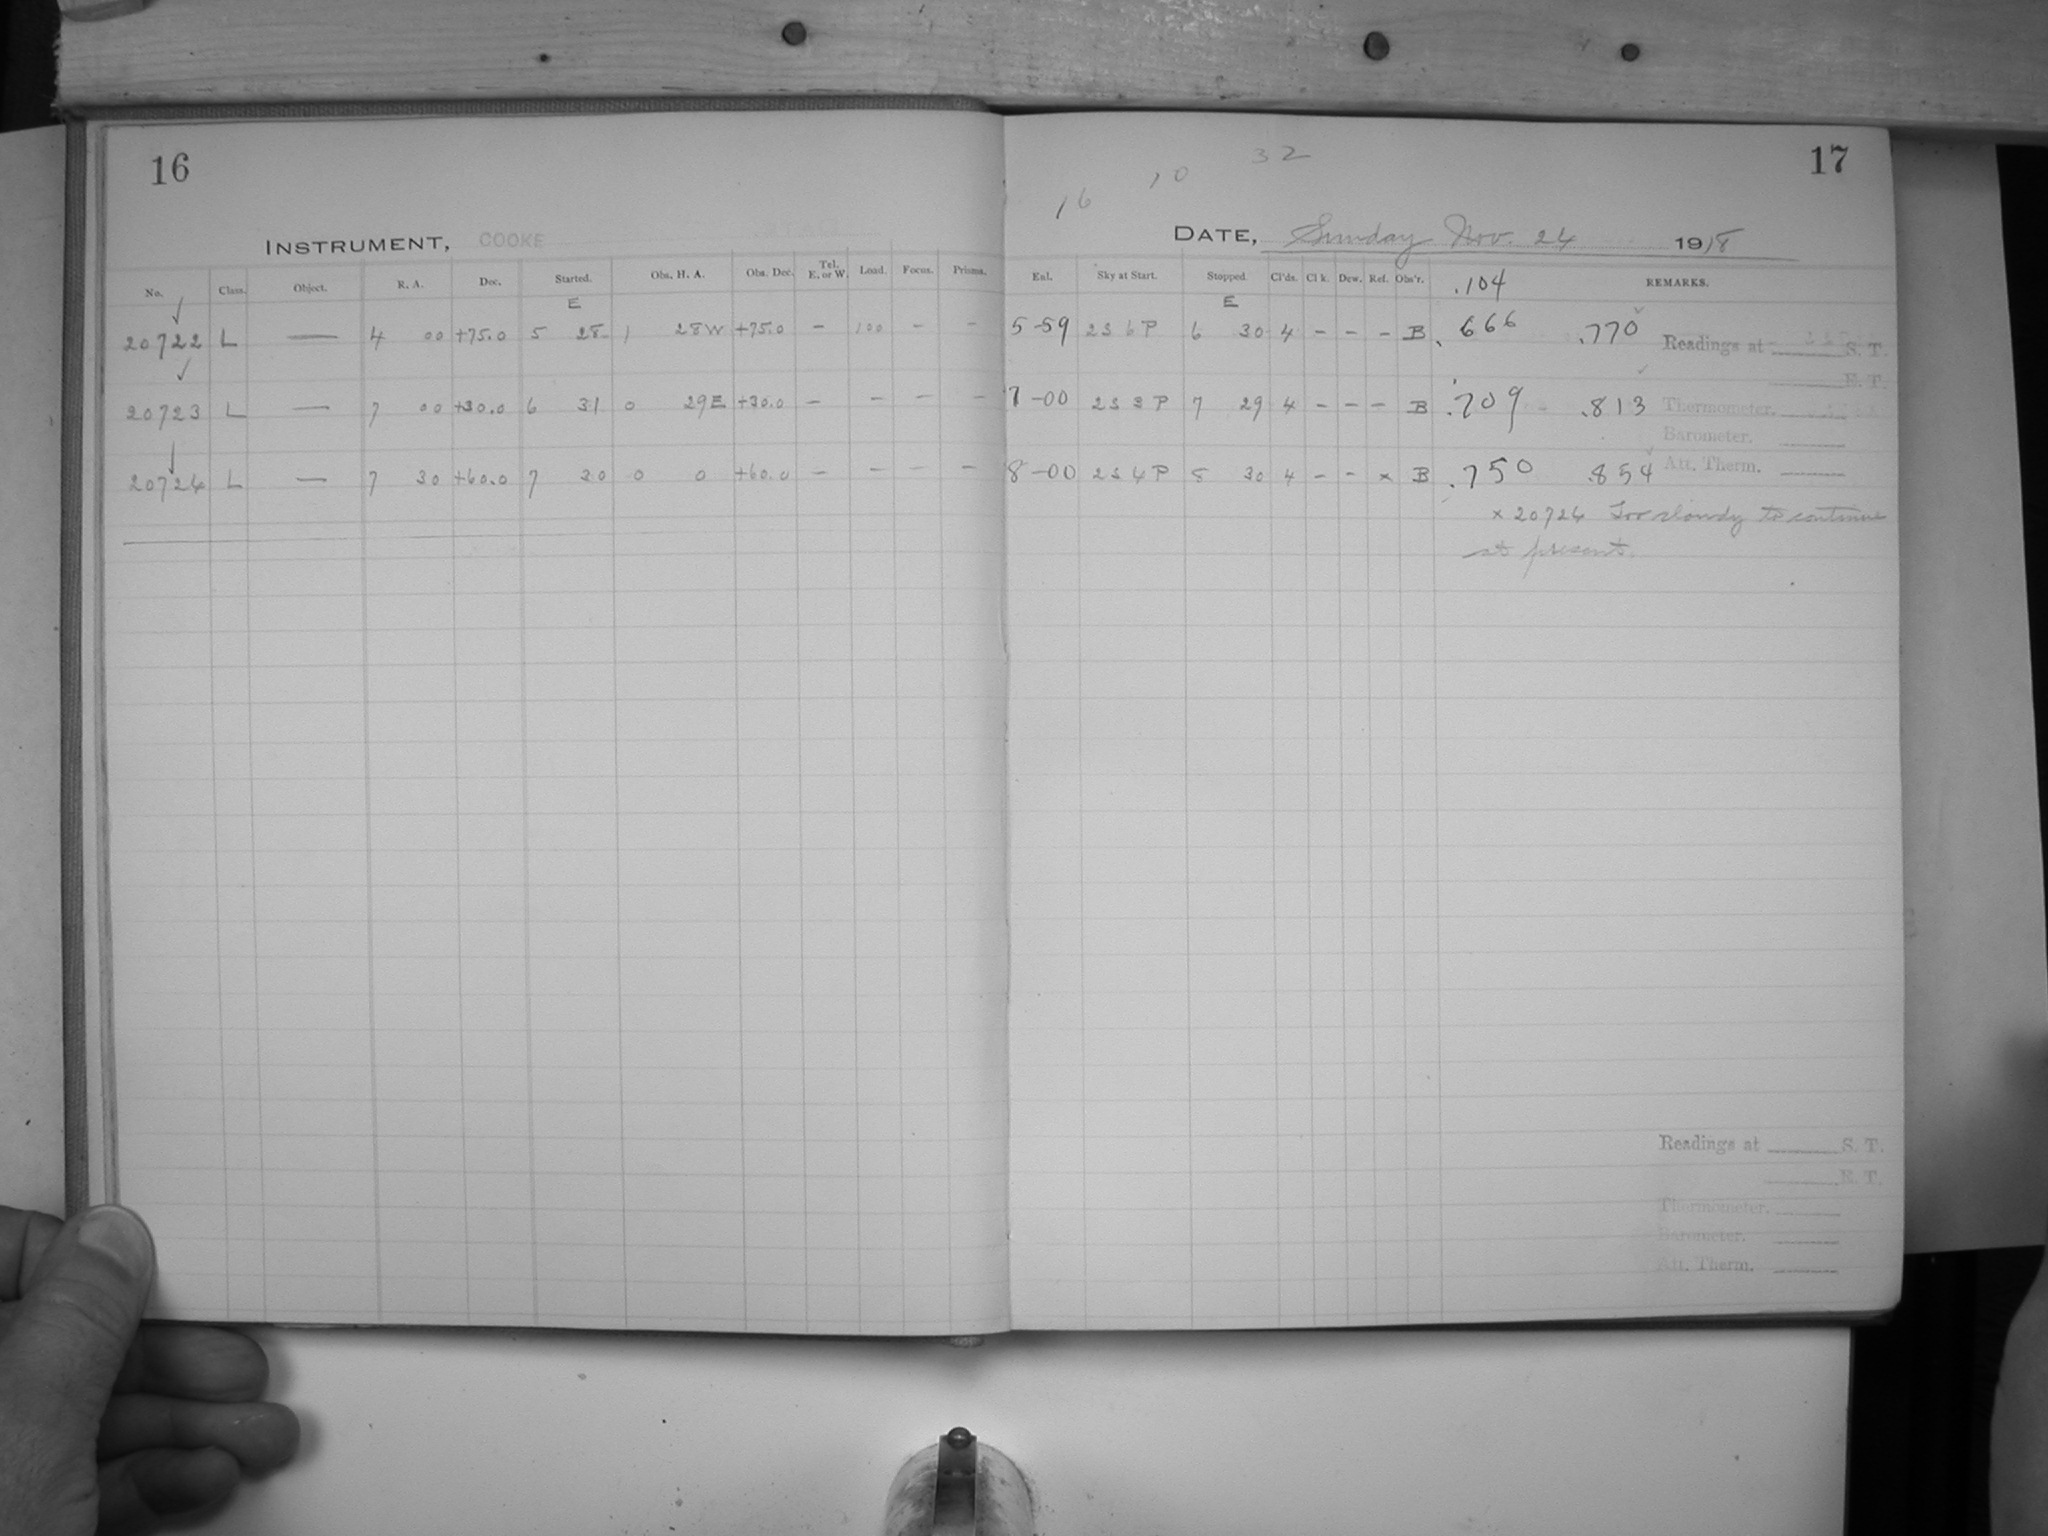 16
INSTRUMENT, COOKE
No. Class. Object. R. A. Dec. Started. Obs. H. A. Obs. Dec. Tel. E. or W. Load. Focus. Prisms.
E
20722 L — 4 00 +75.0 5 28 1 28W +75.0 – 100 – –
20723 L — 7 00 +30.0 6 31 0 29E +30.0 – – – –
20724 L — 7 30 +60.0 7 30 0 0 +60.0 – – – –
17
32
10
16
DATE, Sunday Nov. 24 1918
Sky at Start. Stopped. Cl'ds. Cl k. Dew. Ref. Obs'r. .104 REMARKS.
E
5-59 2 3 6 P 6 30 4 – – – B .666 .770 Readings at S. T.
R. T.
7-00 2 3 3 P 7 29 4 – – – B .709 .813 Thermometer.
Barometer.
8-00 2 3 4 P 8 30 4 – – x B .750 .854 Att. Therm.
x 20724 Too cloudy to continue
at present.
Readings at S. T.
R. T.
Thermometer.
Barometer.
Att. Therm.